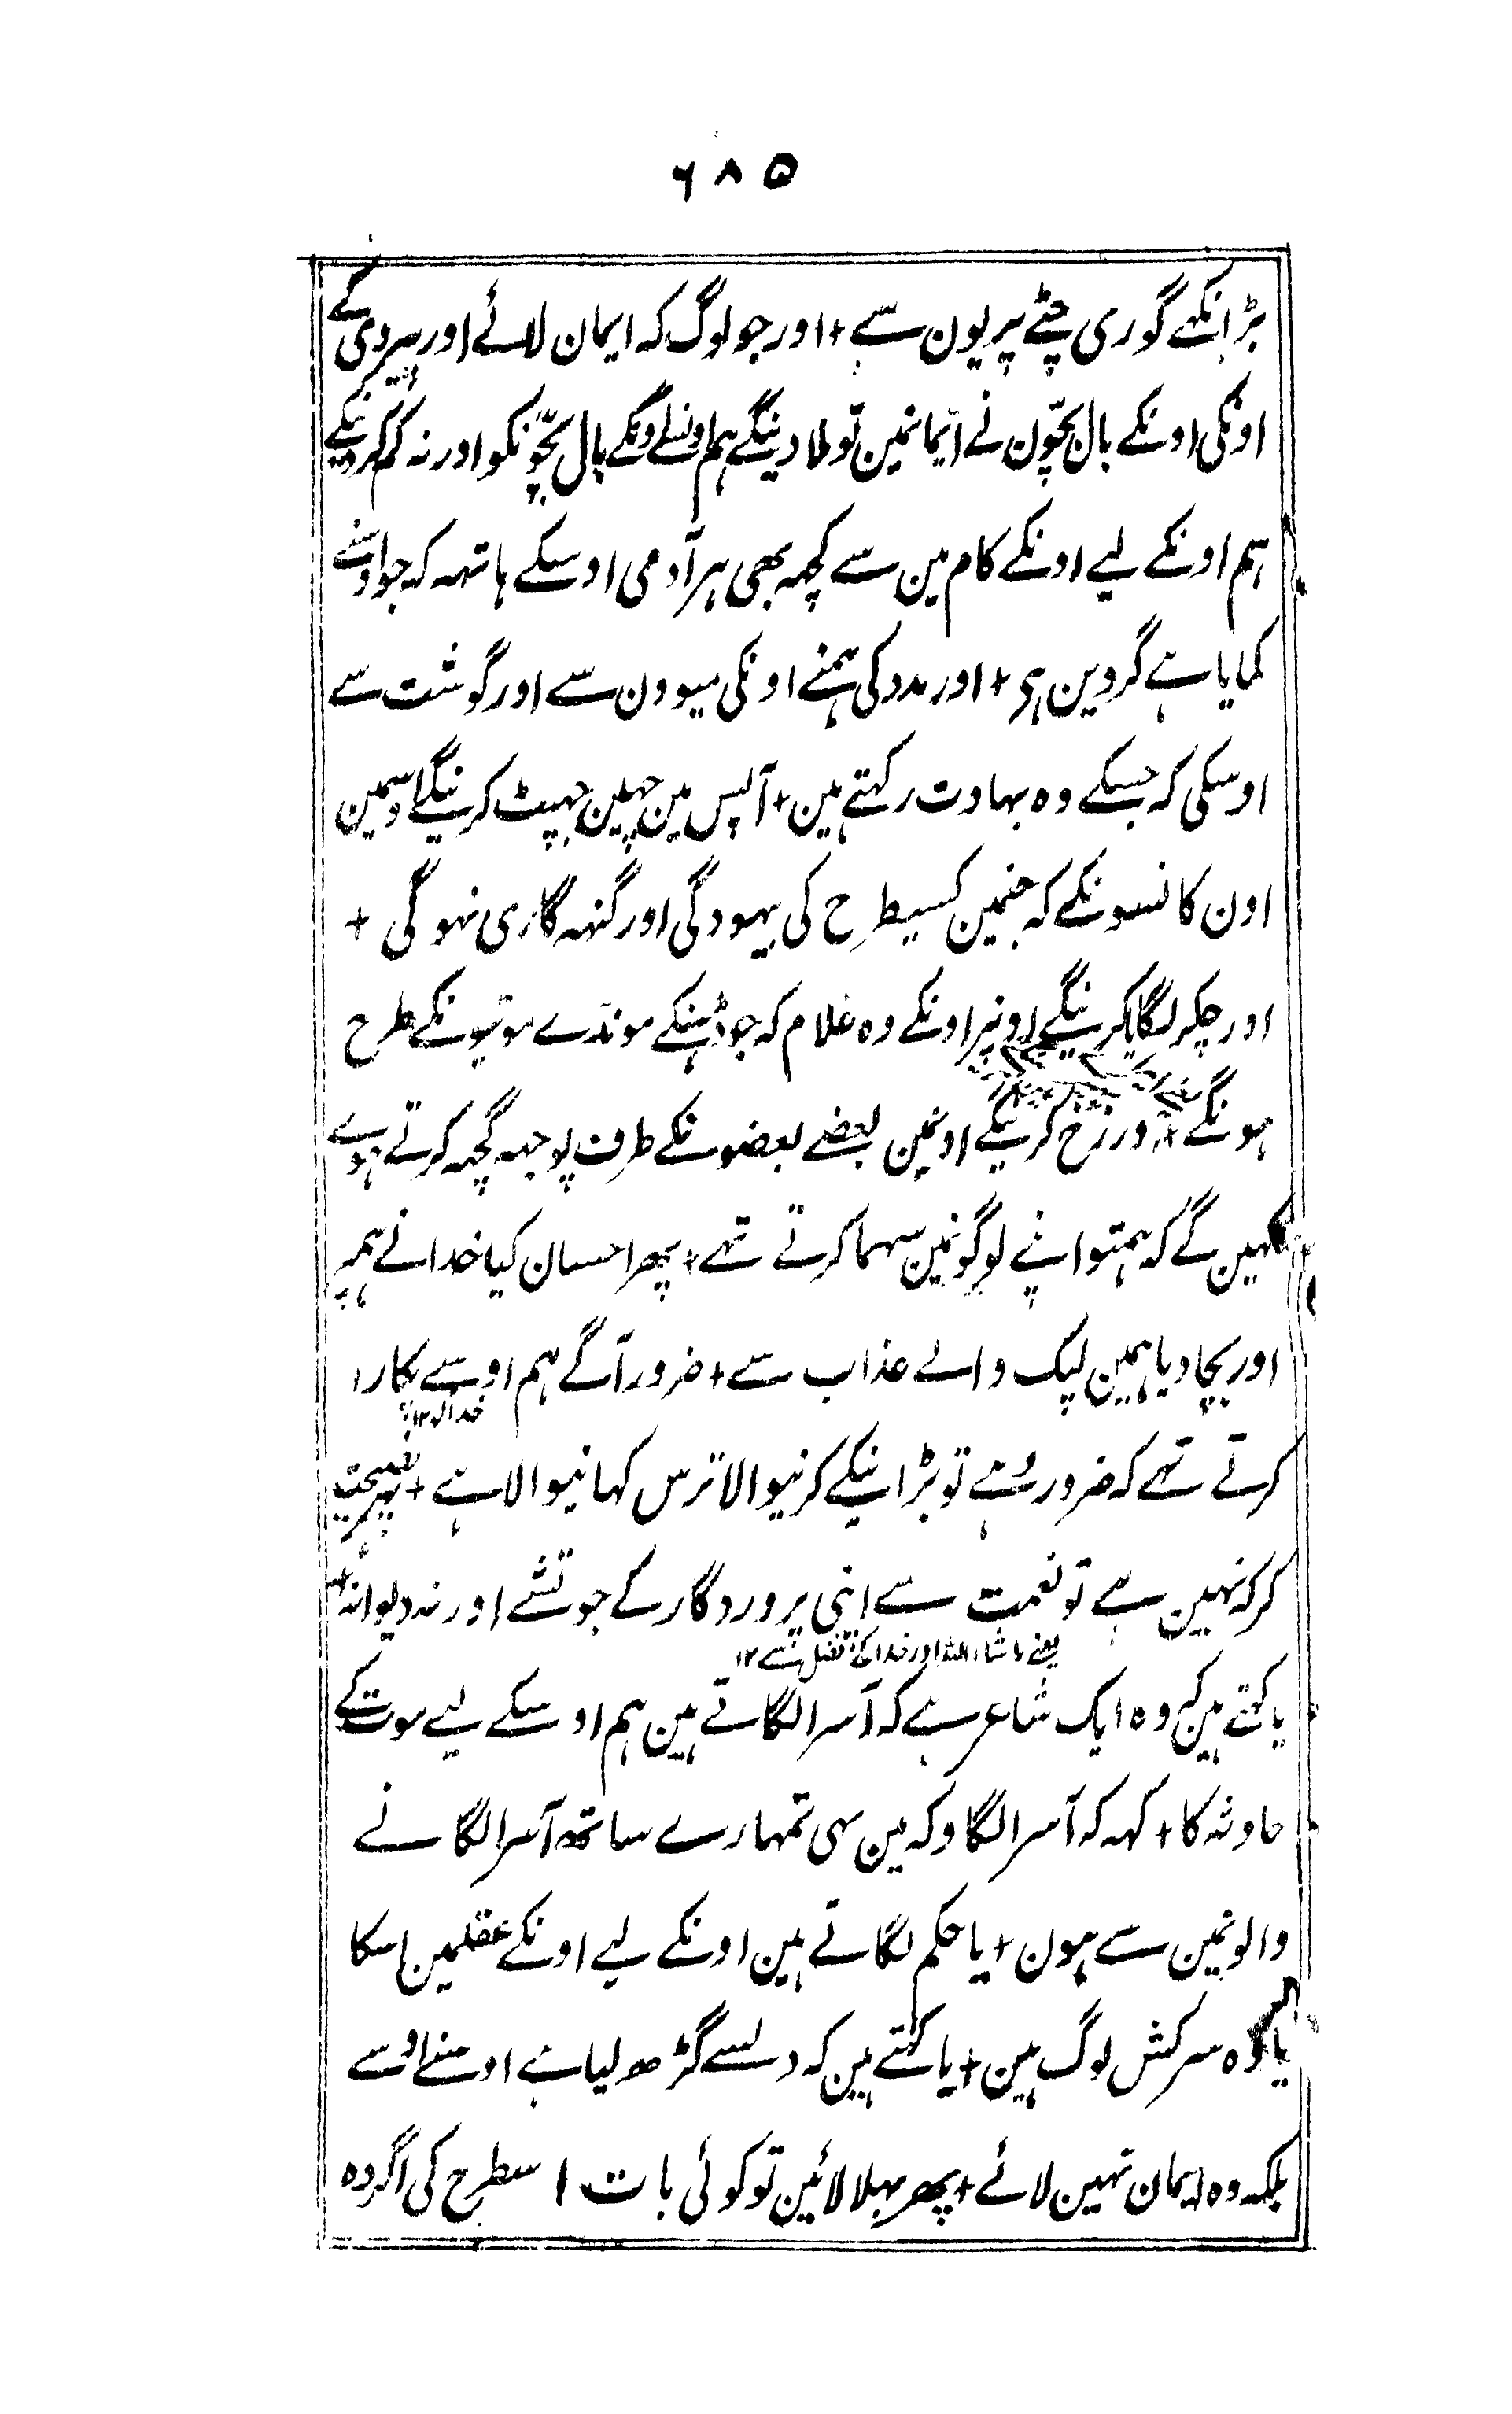 ۶۸۵
بڑانکھے گوری چٹے پریون سے + اور جو لوگ کہ ایمان لائے اور پیروی کے
اونکی اونکے بال بچّون نے ایمانمین تو ملا دینگے ہم اونسے اونکے بال بچّونکو اور نہ کم کردینگے
ہم اونکے لیے اونکے کام مین سے کچھہ بھی ہر آدمی اوسکے ہاتھہ کہ جو اوسنے
کمایا ہے گروین ہی + اور مدد کی ہمنے اونکی میوون سے اور گوشت سے
اوسکی کہ جسکے وہ بہاوت رکہتے ہین + آپس مین چہین جہپٹ کرینگے اوسمین
اون کانسونکے کہ جنمین کسیطرح کی بیہودگی اور گنہہ گاری نہوگی +
اور چکر لگایا کرینگے اونپر اونکے وہ غلام کہ جو ڈہنکے موندے موتیونکے طرح
ہونگے + اور رخ کرینگے اونمین بعضے بعضونکے طرف پوچہہ گچہہ کرتے ہوے
کہین گے کہ ہمتو اپنے لوگونمین سہما کرتے تہے + پھر احسان کیا خدا نے ہمپر
اور بچا دیا ہمین لپک والے عذاب سے + ضرور آگے ہم اوسے پکارا
خدا کو ۱۲
کرتے تہے کہ ضرور وہی تو بڑا نیکے کرنیوالا ترس کہانیوالا ہے + پھر نصیحت
کر کہ نہین ہے تو نعمت سے اپنی پروردگار کے جوتشے اور نہ دیوانہ +
یعنے ماشاء اللہ اور خدا کے فضل سے ۱۲
یا کہتے ہین کہ وہ ایک شاعر ہے کہ آسرا لگاتے ہین ہم اوسکے لیے موت کے
حادثہ کا + کہہ کہ آسرا لگاو کہ مین بہی تمہارے ساتھہ آسرا لگانے
والونمین سے ہون + یا حکم لگاتے ہین اونکے لیے اونکے عقلمین اسکا
یا وہ سرکش لوگ ہین + یا کہتے ہین کہ دلسے گڑھ لیا ہے اوسنے اوسے
بلکہ وہ ایمان نہین لائے + پھر بہلا لائین تو کوئی بات اسطرح کی اگر وہ